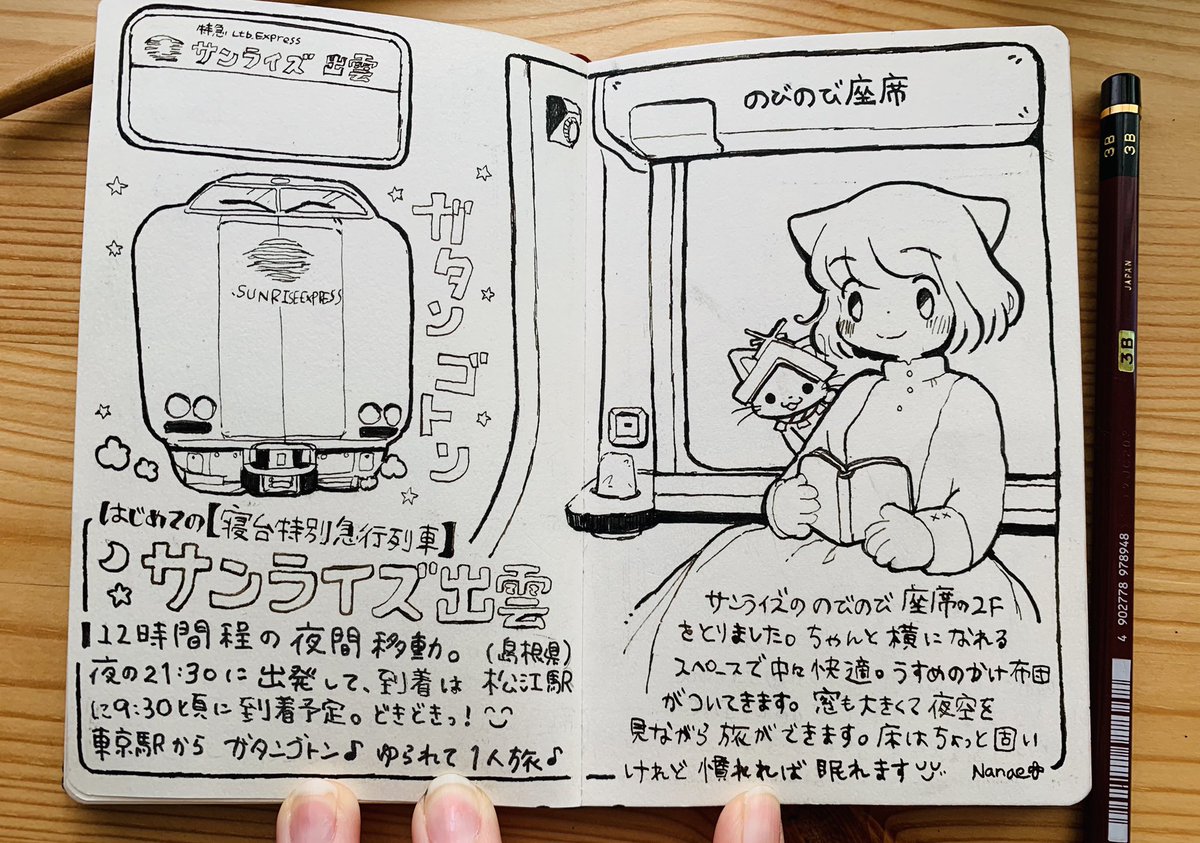 特急 Ltb.Express
サンライズ 出雲
SUNRISE EXPRESS
ガタン
ゴトン
はじめての【寝台特別急行列車】
サンライズ出雲
12時間程の夜間移動。(島根県)
夜の21:30に出発して、到着は 松江駅
に9:30と頃に到着予定。どきどきっ!
東京駅から ガタンゴトン♪ ゆられて 1人旅♪
のびのび座席
サンライズの のびのび 座席の2F
をとりました。ちゃんと横になれる
スペースで中々快適。うすめのかけ布団
がついてきます。窓も大きくて夜空を
見ながら旅ができます。床はちょっと固い
けれど慣れれば眠れます
Nanae
3B
3B
JAPAN
3B
4 902778 978948